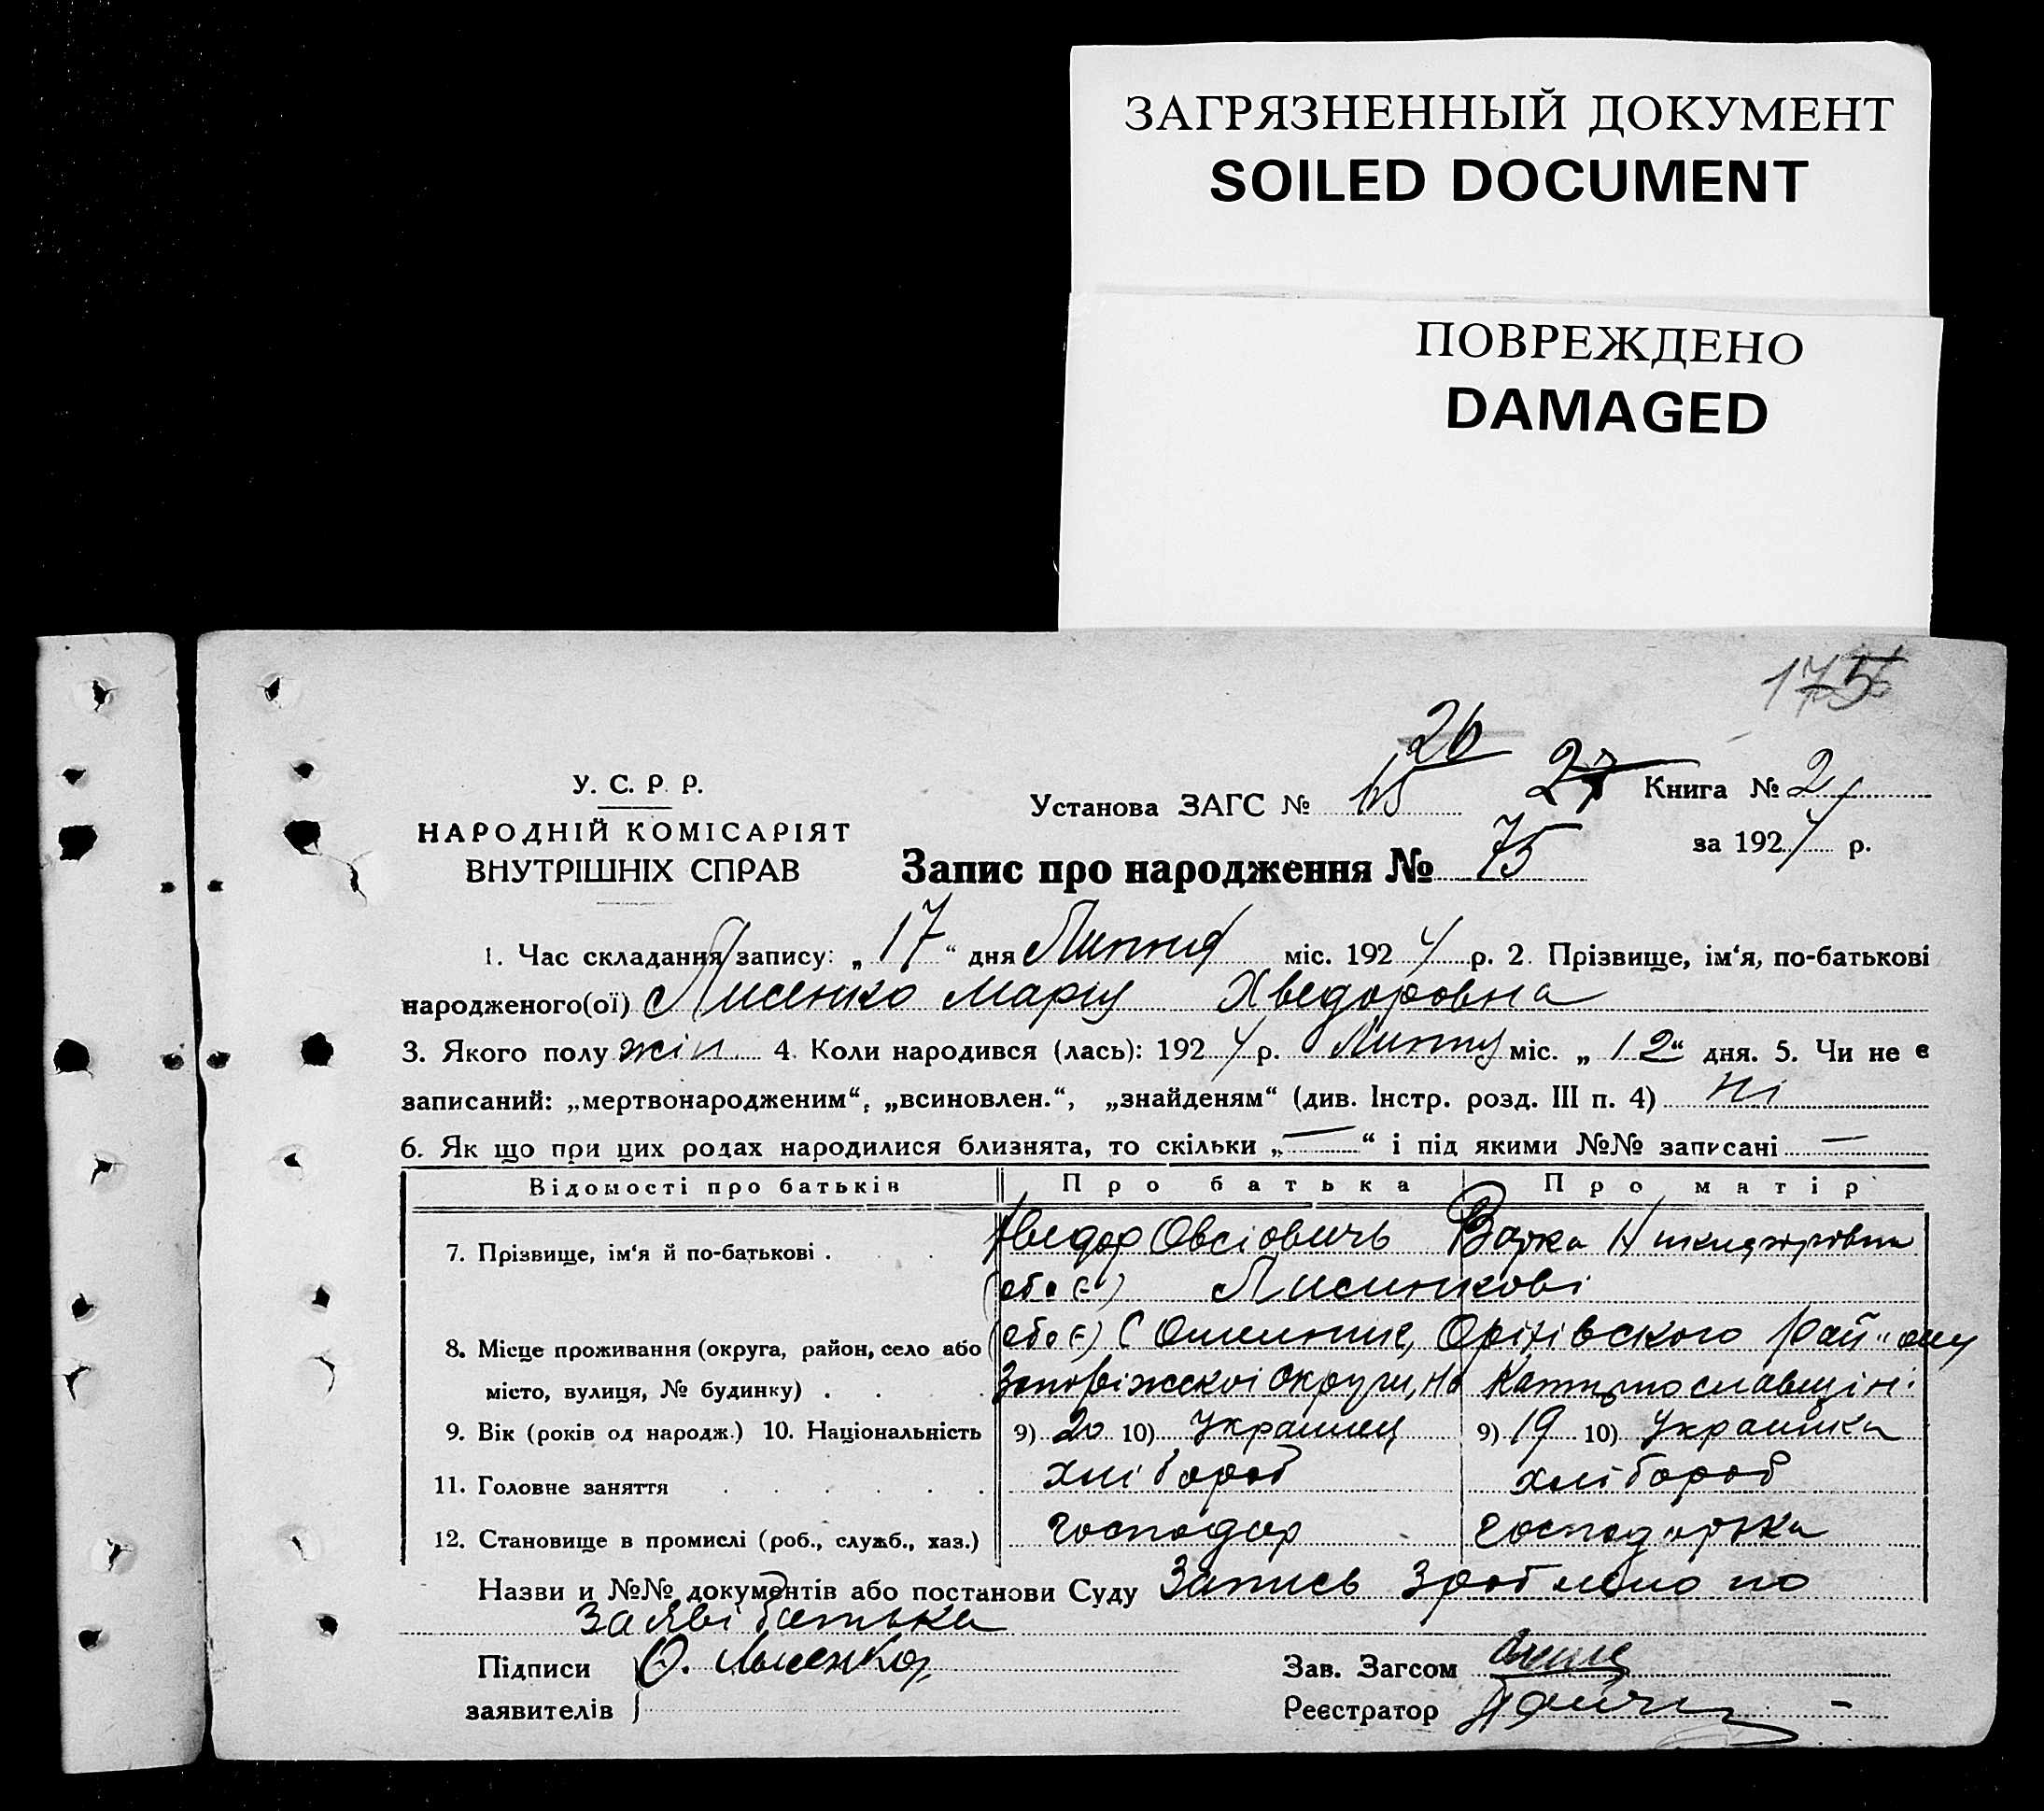 ЗАГРЯЗНЕННЫЙ ДОКУМЕНТ
SOILED DOCUMENT
ПОВРЕЖДЕНО
DAMAGED
26
У. С. Р. Р.
НАРОДНІЙ КОМІСАРІЯТ
ВНУТРІШНІХ СПРАВ
Установа ЗАГС № 27 Книга № 2
за 1924 р.
Запис про народження № 75
1. Час складання запису: „ 17 “ дня Липня міс. 1924 р. 2. Прізвище, ім‘я, по-батькові
народженого(ої) Лисенко Марія Хведоровна
3. Якого полу жін. 4. Коли народився (лась): 1924 р. Липня міс. „ 12 “ дня. 5. Чи не є
записаний: „мертвонародженим“, „всиновлен.“, „знайденям“ (див. Інстр. розд. III п. 4) Ні
6. Як що при цих родах народилися близнята, то скільки „ — “ і під якими №№ записані —
Відомості про батьків Про батька Про матір
7. Прізвище, ім‘я й по-батькові . Хведор Овсіовичь Варка Никихворовна
(обоє) Лисинкові
8. Місце проживання (округа, район, село або (обоє) с Омельник, Оріхівского району
місто, вулиця, № будинку) . Запоріжскоі округи, на Катиринославщині
9. Вік (років од народж.) 10. Національність 9) 20 10) Українец 9) 19 10) Українка
11. Головне заняття хлібороб хлібороб
12. Становище в промислі (роб., служб., хаз.) господар господарка
Назви и №№ документів або постанови Суду Запись зроблено по
заяві батька
Підписи Лисенко Зав. Загсом
заявителів Реєстратор